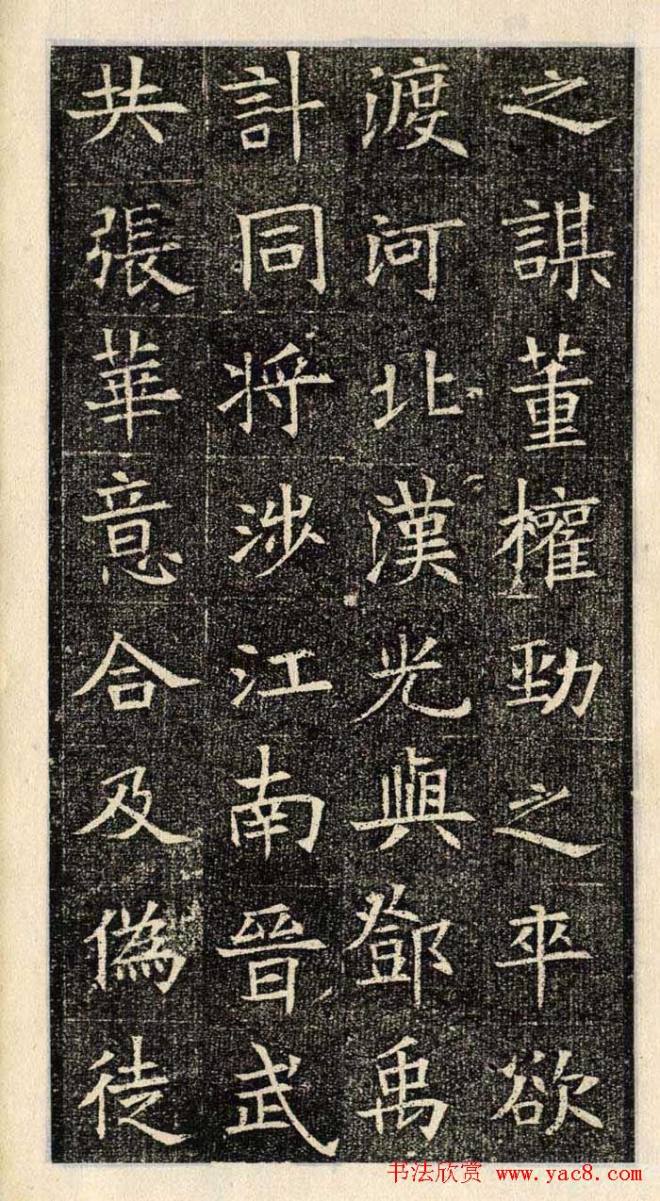 之謀董權勁之卒欲
渡河北漢光與鄧禹
計同將涉江南晉武
共張華意合及偽徒
书法欣赏 www.yac8.com